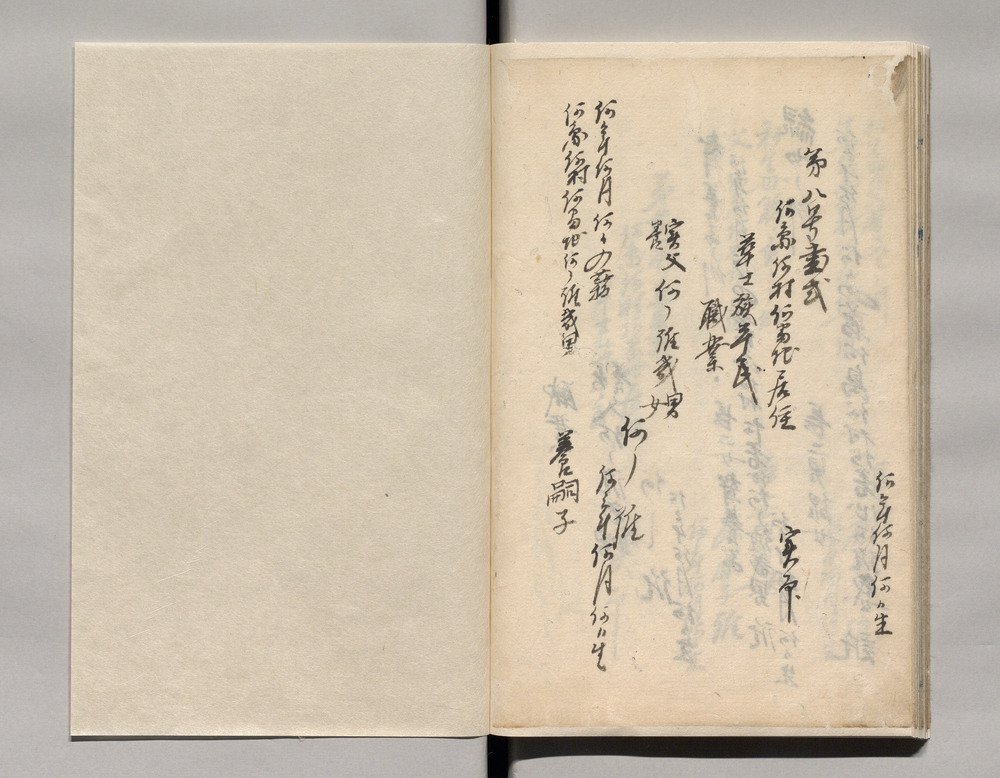 何年何月何日生
第八号書式
何郡何村何番地居住
華士族平民
職業
実原
実養父何ノ誰或男女
何ノ誰
何年何月何日生
何年何月何々の
何郡何村何番地何ノ誰或男
養嗣子